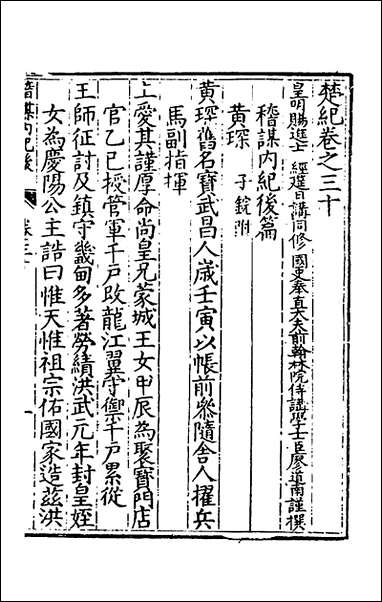 楚紀卷之三十
皇明賜進士 經筵日講同修 國史奉直大夫前翰林院侍講學士臣廖道南謹撰
稽謀內紀後篇
黄琛 子鉞附
黄琛舊名寶武昌人歲壬寅以帳前叅隨舍人擢兵
馬副指揮
上愛其謹厚命尚皇兄蒙城王女甲辰為聚寳門店
官乙巳授管軍千戸改龍江翼守禦千戸累從
王師征討及鎮守畿甸多著勞績洪武元年封皇姪
女為慶陽公主誥曰惟天惟祖宗佑國家造兹洪